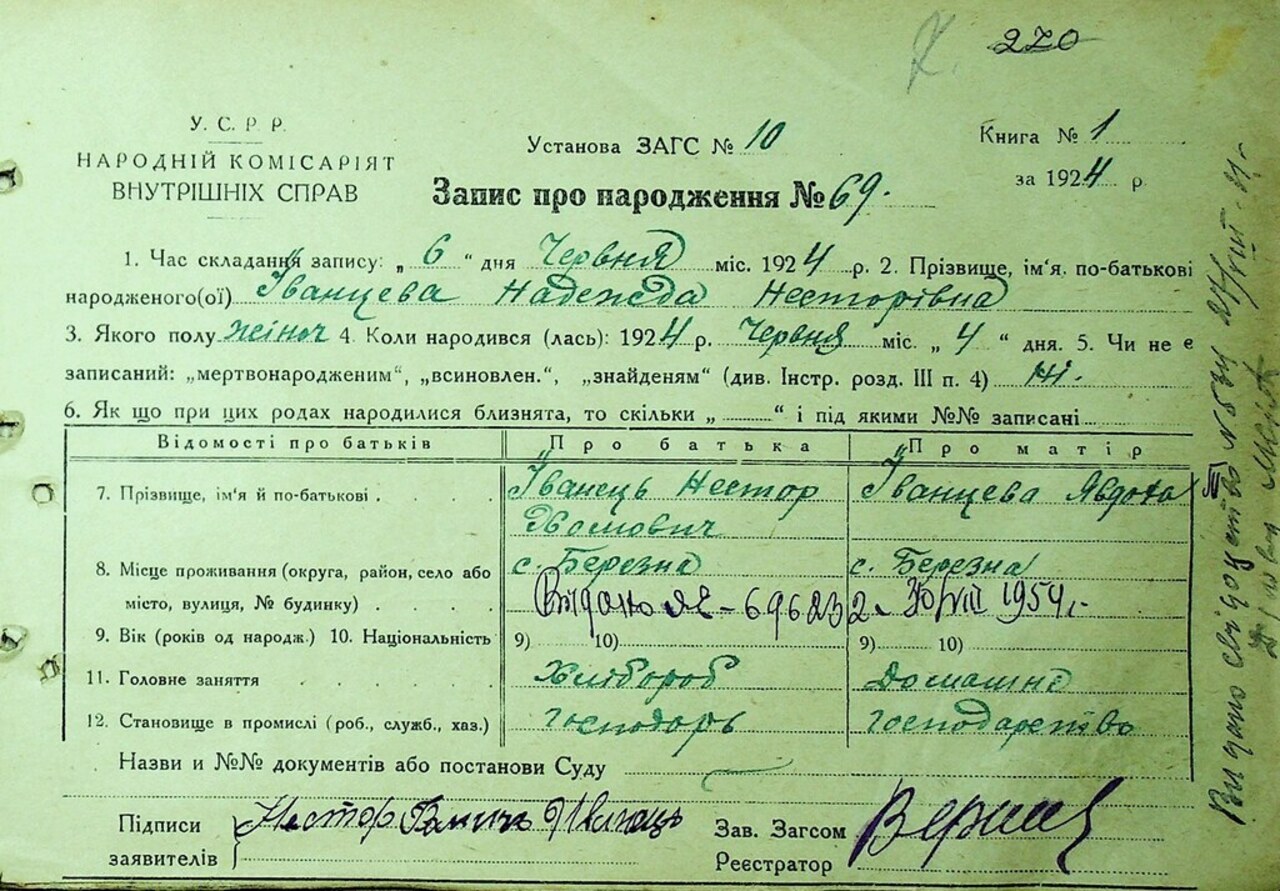 270
У. С. Р. Р.
НАРОДНІЙ КОМІСАРІЯТ
ВНУТРІШНІХ СПРАВ
Установа ЗАГС № 10
Книга № 1
за 1924 р.
Запис про народження № 69.
1. Час складання запису: „ 6 “ дня Червня міс. 1924 р. 2. Прізвище, ім'я, по-батькові
народженого(ої) Іванцева Надежда Несторівна
3. Якого полу жіноч 4. Коли народився (лась): 1924 р. Червня міс. „ 4 “ дня. 5. Чи не є
записаний: „мертвонародженим“, „всиновлен.“, „знайденям“ (див. Інстр. розд. III п. 4) Ні.
6. Як що при цих родах народилися близнята, то скільки „ “ і під якими №№ записані
Відомості про батьків Про батька Про матір
7. Прізвище, ім'я й по-батькові Іванець Нестор Іванцева Явдоха
8. Місце проживання (округа, район, село або с. Березна с. Березна
місто, вулиця, № будинку) Видано ЯЕ-696232 30/VIII 1954 г.
9. Вік (років од народж.) 10. Національність 9) 10) 9) 10)
11. Головне заняття Хлібороб Домашнє
12. Становище в промислі (роб., служб., хаз.) господарь господарство
Назви и №№ документів або постанови Суду
Підписи Нестор Іванець Зав. Загсом
заявителів Реєстратор
Видано свідоцтво №